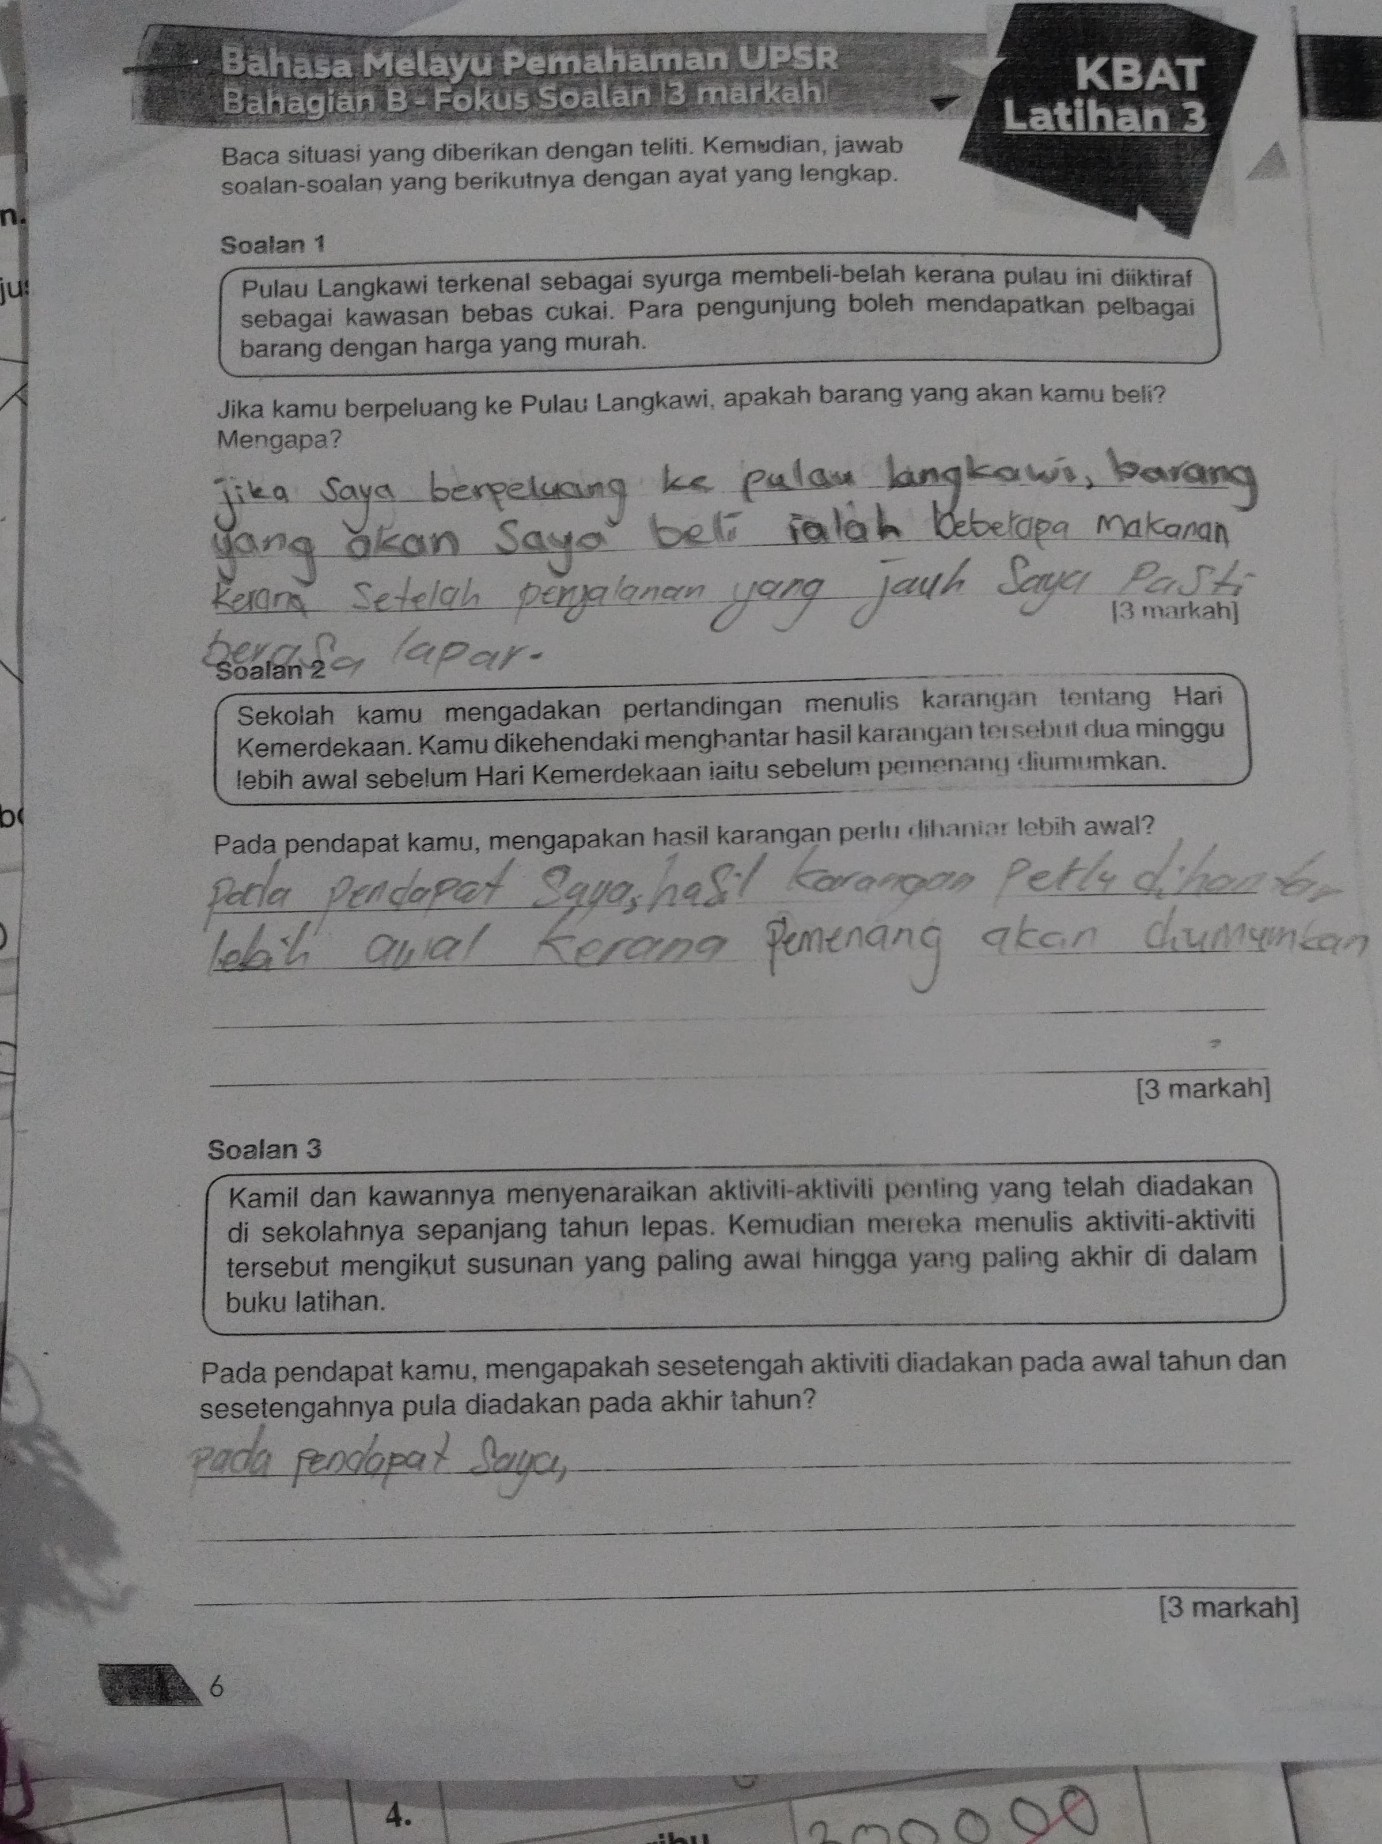 Bahasa Melayu Pemahaman UPSR
Bahagian B - Fokus Soalan [3 markah]
KBAT
Latihan 3
Baca situasi yang diberikan dengan teliti. Kemudian, jawab
soalan-soalan yang berikutnya dengan ayat yang lengkap.
n.
Soalan 1
Pulau Langkawi terkenal sebagai syurga membeli-belah kerana pulau ini diiktiraf
sebagai kawasan bebas cukai. Para pengunjung boleh mendapatkan pelbagai
barang dengan harga yang murah.
Jika kamu berpeluang ke Pulau Langkawi, apakah barang yang akan kamu beli?
Mengapa?
jika saya berpeluang ke pulau langkawi, barang
yang akan saya beli ialah beberapa makanan
kerana setelah perjalanan yang jauh saya pasti
[3 markah]
berasa lapar.
Soalan 2
Sekolah kamu mengadakan pertandingan menulis karangan tentang Hari
Kemerdekaan. Kamu dikehendaki menghantar hasil karangan tersebut dua minggu
lebih awal sebelum Hari Kemerdekaan iaitu sebelum pemenang diumumkan.
Pada pendapat kamu, mengapakan hasil karangan perlu dihantar lebih awal?
pada pendapat saya, hasil karangan perlu dihantar
lebih awal kerana pemenang akan diumumkan
[3 markah]
Soalan 3
Kamil dan kawannya menyenaraikan aktiviti-aktiviti penting yang telah diadakan
di sekolahnya sepanjang tahun lepas. Kemudian mereka menulis aktiviti-aktiviti
tersebut mengikut susunan yang paling awal hingga yang paling akhir di dalam
buku latihan.
Pada pendapat kamu, mengapakah sesetengah aktiviti diadakan pada awal tahun dan
sesetengahnya pula diadakan pada akhir tahun?
pada pendapat saya,
[3 markah]
6
4.